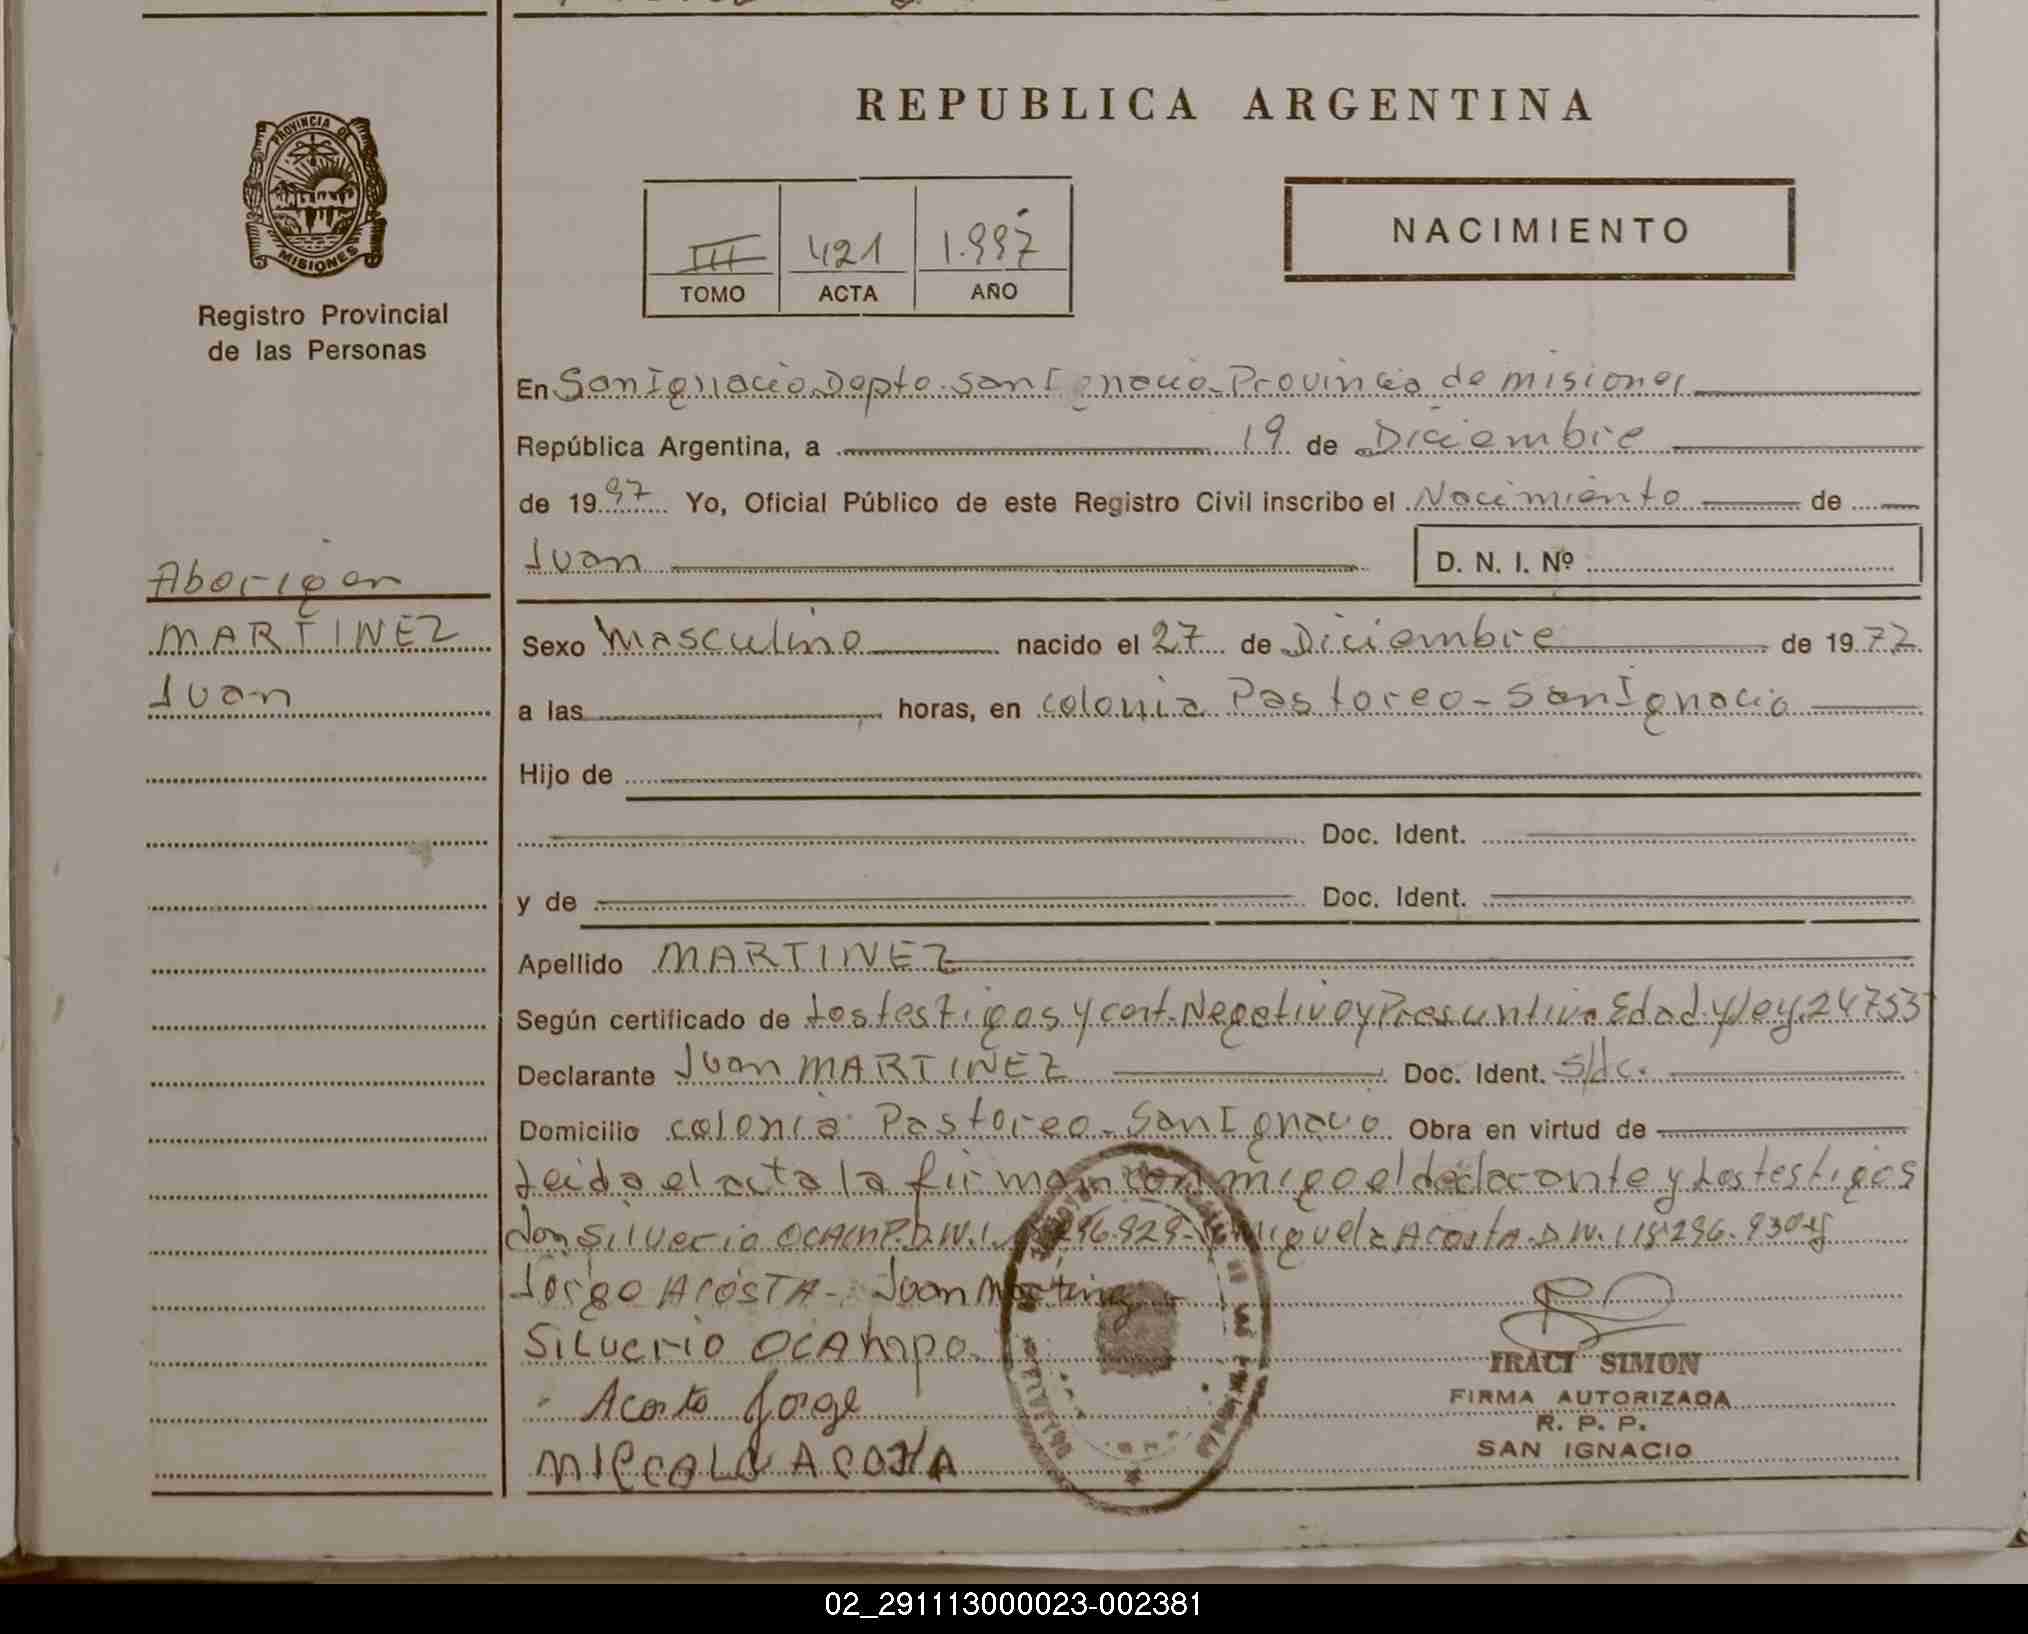 REPUBLICA ARGENTINA
PROVINCIA DE
MISIONES
Registro Provincial
de las Personas
III 421 1.997
TOMO ACTA AÑO
NACIMIENTO
En San Ignacio Dopto. San Ignacio. Provincia de misiones
República Argentina, a 19 de Diciembre
de 1997 Yo, Oficial Público de este Registro Civil inscribo el Nacimiento de
Juan D. N. I. Nº
Aborigen
MARTINEZ
Juan
Sexo Masculino nacido el 27 de Diciembre de 1972
a las horas, en colonia Pastoreo - San Ignacio
Hijo de
Doc. Ident.
y de Doc. Ident.
Apellido MARTINEZ
Según certificado de Los testigos y cert. Negativo y Presuntiva Edad y ley 24755
Declarante Juan MARTINEZ Doc. Ident. s/dc.
Domicilio colonia Pastoreo - San Ignacio Obra en virtud de
Leida el acta la firman con migo el declarante y Los testigos
don Silverio OCAMP. D.N.I. 296.929 - Miguela Acosta D.N.I 18.296.930 y
Jorge ACOSTA - Juan Martinez
SiLVErio OCAmpo
Acosta Jorge
ACOSTA
IRACI SIMON
FIRMA AUTORIZADA
R. P. P.
SAN IGNACIO
02_291113000023-002381